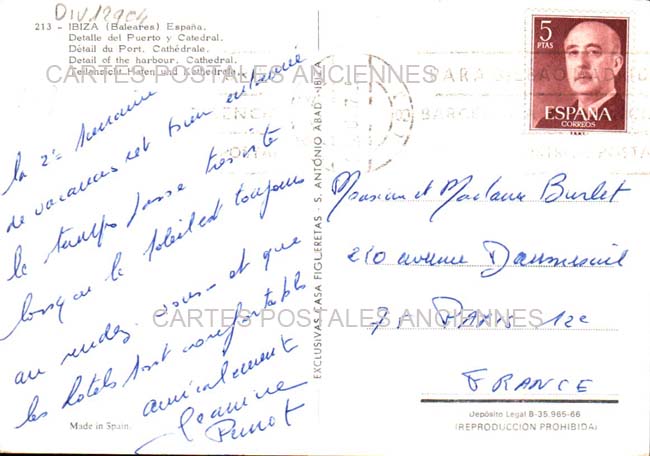 DIV12904
213 - IBIZA (Baleares) España.
Detalle del Puerto y Catedral.
Détail du Port, Cathédrale.
Detail of the harbour, Cathedral.
Teilansicht Hafen und Kathedrale.
CARTES POSTALES ANCIENNES
la 2e semaine
de vacances est bien entamée
le temps passe très vite
lorsque le soleil est toujours
au rendez-vous - et que
les hotels sont confortables
amicalement
Jeannine
Perrot
Made in Spain.
EXCLUSIVAS CASA FIGUERETAS - S. ANTONIO ABAD - IBIZA
5
PTAS
ESPAÑA
CORREOS
Monsieur et Madame Burlet
210 avenue Daumesnil
PARIS 12e
CARTES POSTALES ANCIENNES
FRANCE
Depósito Legal B-35.965-66
(REPRODUCCION PROHIBIDA)